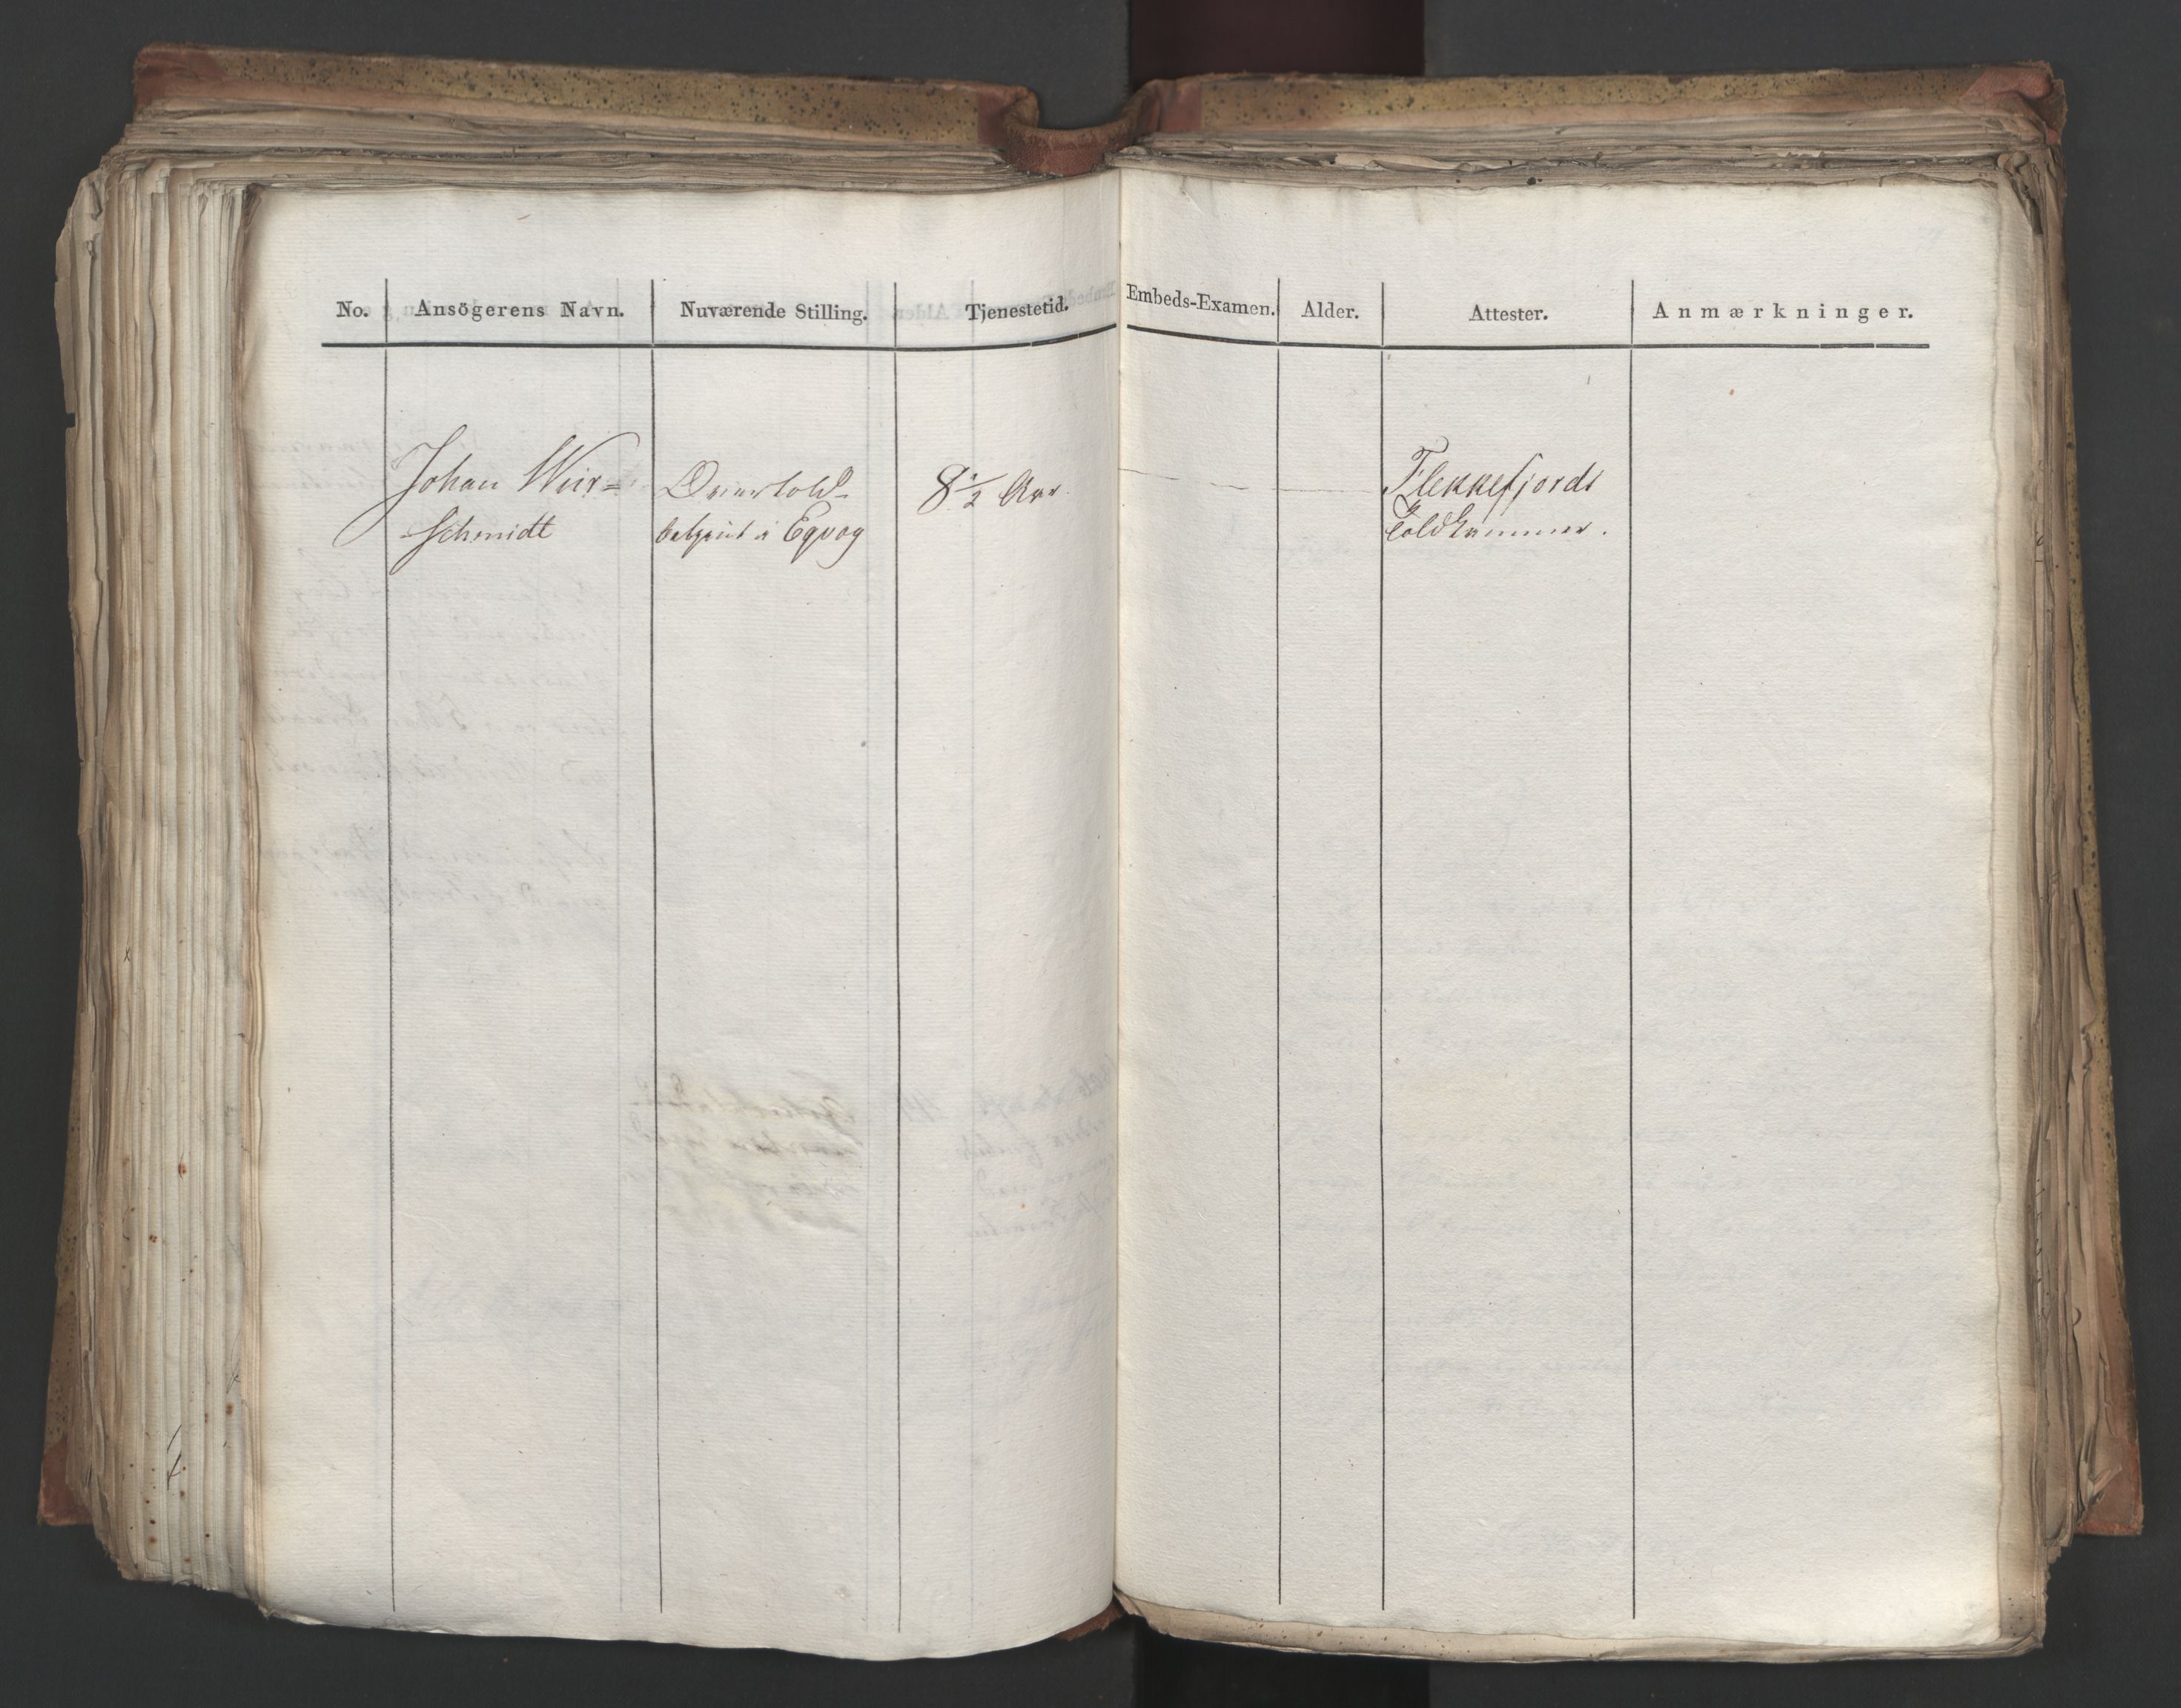 No. Ansögerens Navn. Nuværende Stilling. Tjenestetid. Embeds-Examen. Alder. Attester. Anmærkninger.
Johan Weir= Overtold- 8 1/2 Aar. Flekkefjords
Schmidt betjent i Eqvog Toldkammer.